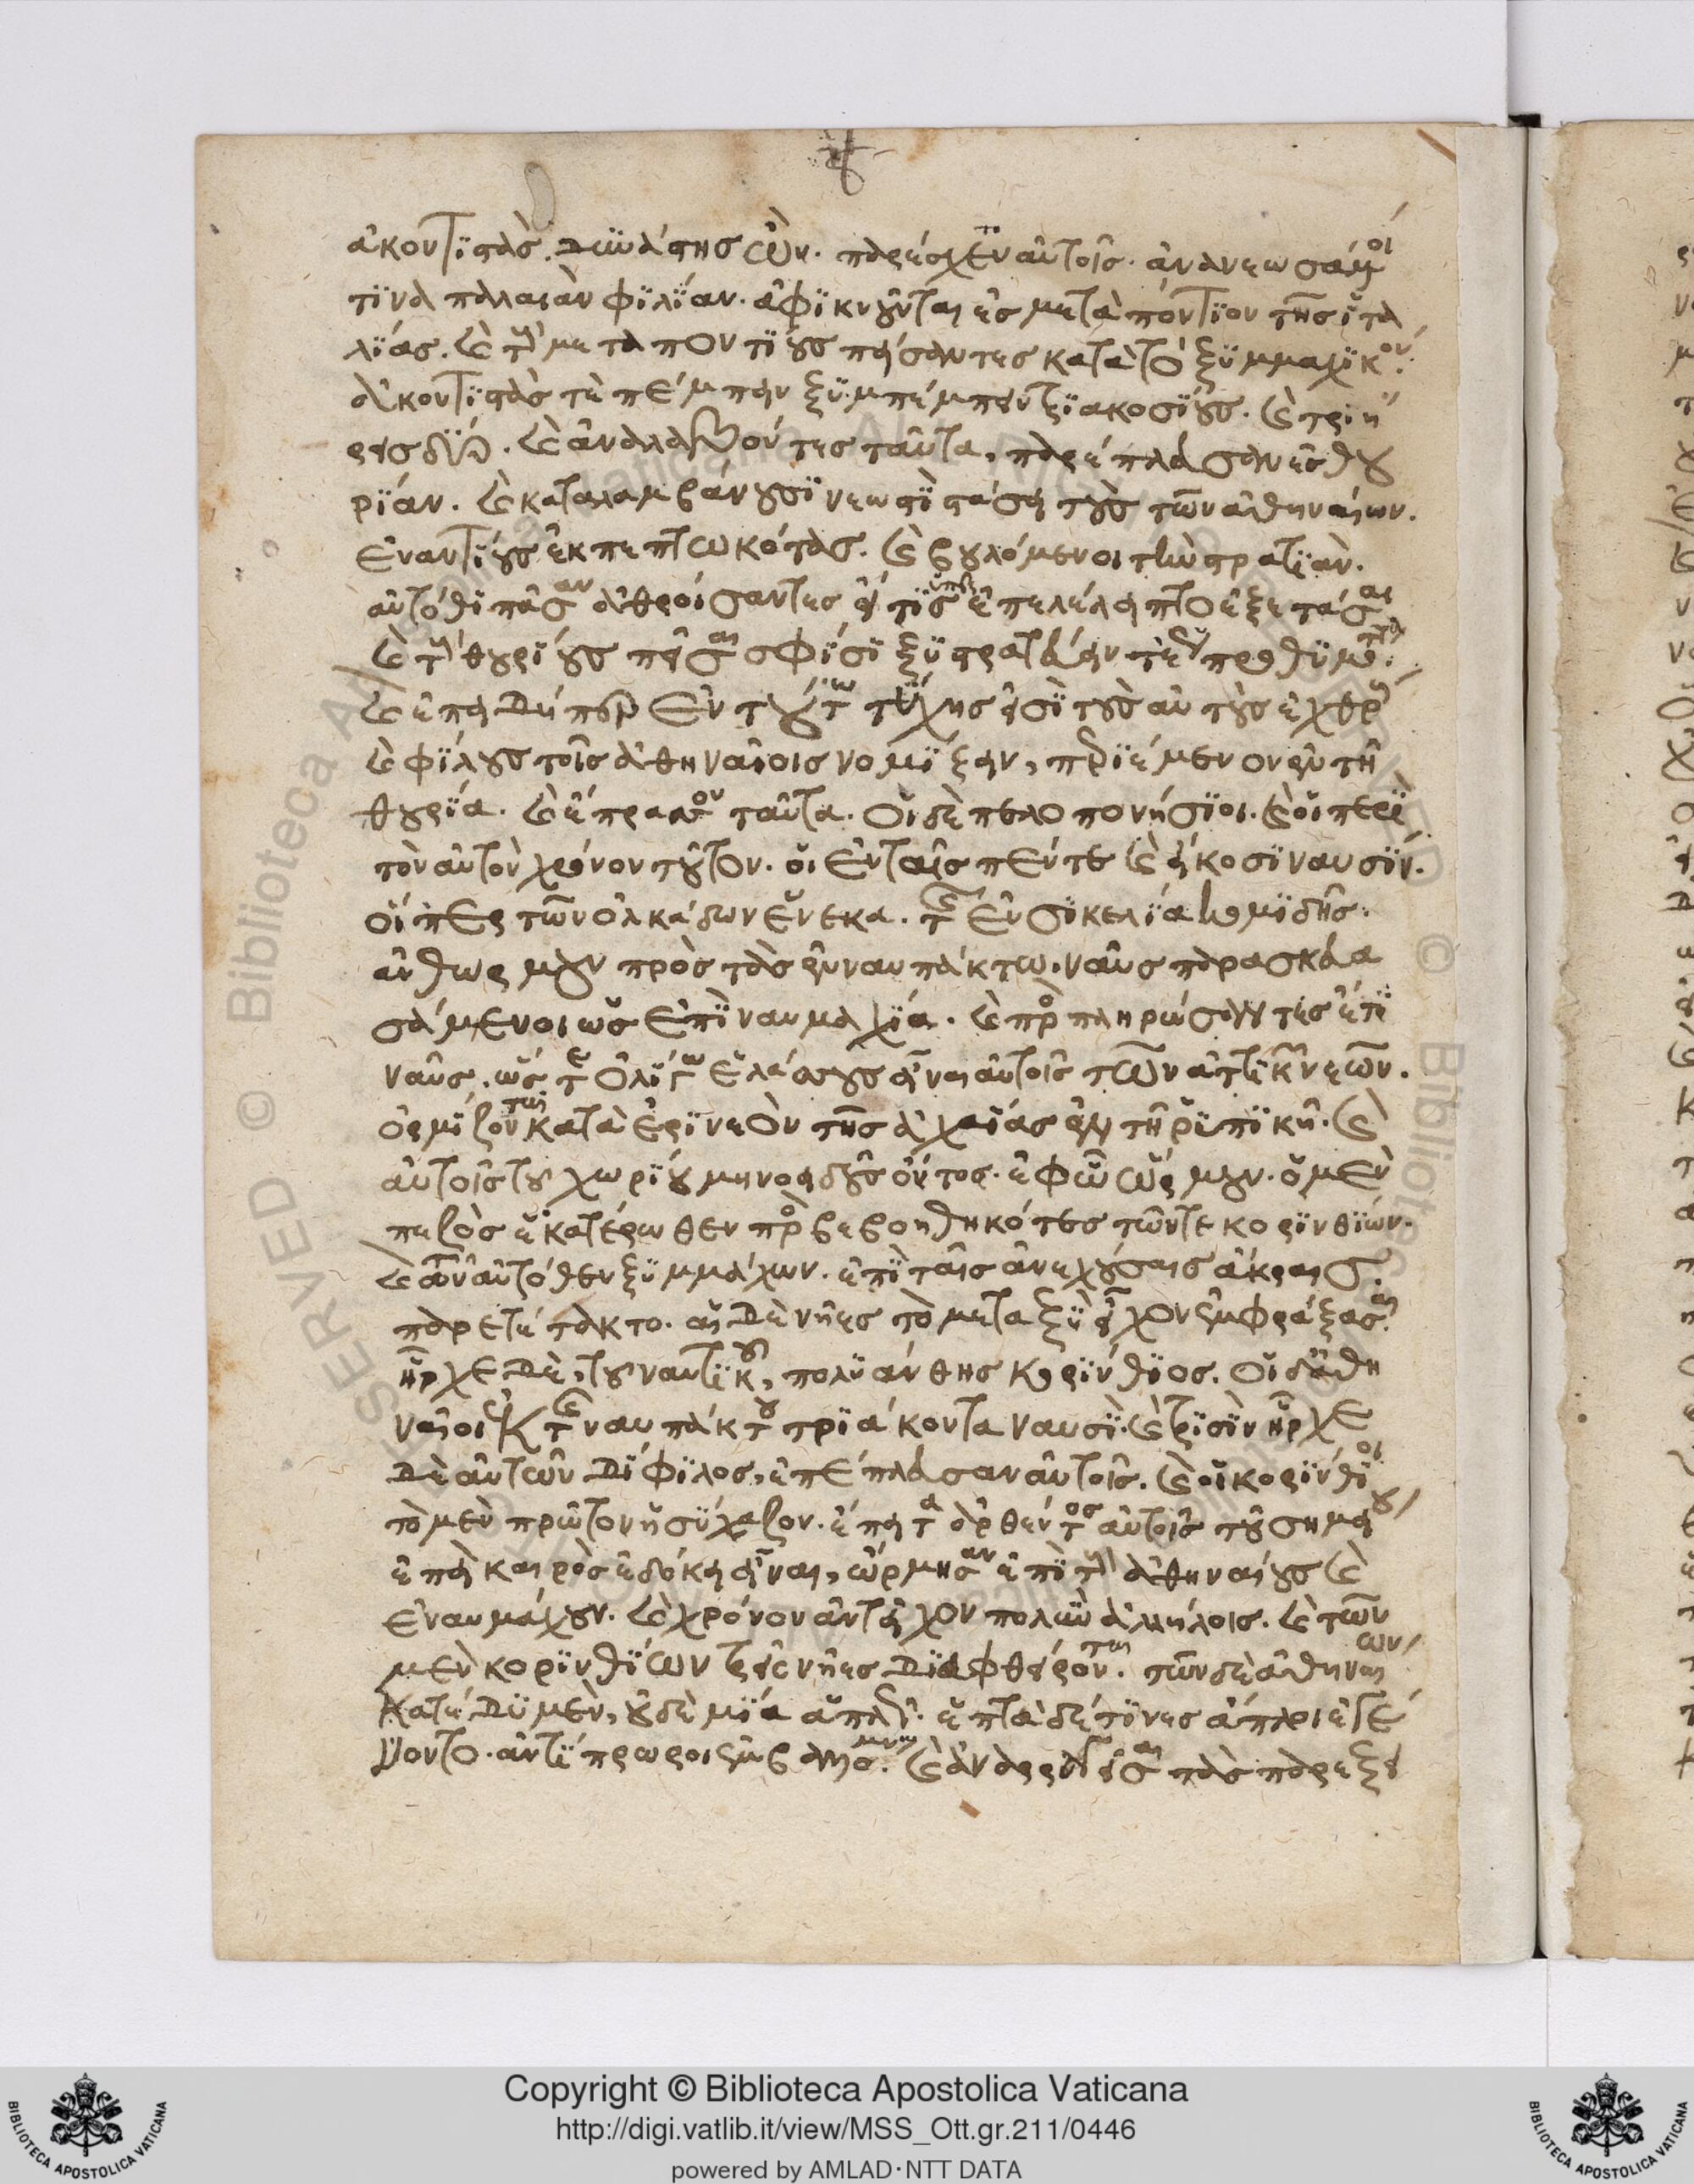 ἀκοντιστὰς δυνάστης ὢν παρέσχεν αὐτοῖς ἀνανεωσάμενοι
τινα παλαιὰν φιλίαν. ἀφικνοῦνται ἐς μεταπόντιον τῆς ἰτα
λίας. καὶ τοὺς μεταποντίους πείσαντες κατὰ τὸ ξυμμαχικὸν
ἀκοντιστάς τε πέμπειν ξυμπέμπειν τριακοσίους. καὶ τριή
ρεις δύο. καὶ ἀναλαβόντες ταῦτα, παρέπλευσαν ἐς θου
ρίαν. καὶ καταλαμβάνουσι νεωστὶ στάσει τοὺς τῶν ἀθηναίων.
ἐναντίους ἐκπεπτωκότας. καὶ βουλόμενοι τὴν στρατιὰν.
αὐτόθι πᾶσαν ἀθροίσαντες εἴ τις ὑπελέλειπτο ἐξετάσαι
καὶ τοὺς θουρίους πεῖσαι σφίσι ξυστρατεύειν τε
καὶ ἐπειδήπερ ἐν τούτω τύχης εἰσὶ τοὺς αὐτοὺς ἐχθροὺς
καὶ φίλους τοῖς ἀθηναίοις νομίζειν, περιέμενον ἐν τῇ
θουρία. καὶ ἔπρασσον ταῦτα. οἱ δὲ πελοποννήσιοι. καὶ οἱ περὶ
τὸν αὐτὸν χρόνον τοῦτον. οἱ ἐν ταῖς πέντε καὶ εἴκοσι ναυσίν.
οἵπερ τῶν ὁλκάδων ἕνεκα. τῆς ἐν σικελία κομιδῆς.
ἀνθώρμουν πρὸς τὰς ἐν ναυπάκτω. ναῦς παρασκευα
σάμενοι ὡς ἐπὶ ναυμαχία. καὶ προσπληρώσαντες ἔτι
ναῦς. ὥστε ὀλίγω ἐλάσσους εἶναι αὐτοῖς τῶν ἀττικῶν νεῶν.
ὁρμίζονται κατὰ ἐρινεὸν τῆς ἀχαΐας ἐν τῇ ῥυπικῇ. καὶ
αὐτοῖς τοῦ χωρίου μηνοειδοῦς ὄντος. ἐφ' ᾧ ὥρμουν. ὁ μὲν
πεζὸς ἑκατέρωθεν προσβεβοηθηκότες τῶν τε κορινθίων.
καὶ τῶν αὐτόθεν ξυμμάχων. ἐπὶ ταῖς ἀνεχούσαις ἄκραις.
παρετέτακτο. αἱ δὲ νῆες τὸ μεταξὺ εἶχον ἐμφράξασαι.
ἦρχε δὲ, τοῦ ναυτικοῦ, πολυάνθης κορίνθιος. οἱ δ' ἀθη
ναῖοι ἐκ τῆς ναυπάκτου τριάκοντα ναυσὶ. καὶ τρισὶν ἦρχε
δὲ αὐτῶν δίφιλος, ἐπέπλευσαν αὐτοῖς. καὶ οἱ κορίνθιοι
τὸ μὲν πρῶτον ἡσύχαζον. ἔπειτα ἀρθέντος αὐτοῖς τοῦ σημείου
ἐπεὶ καιρὸς ἐδόκει εἶναι, ὥρμησαν ἐπὶ τοὺς ἀθηναίους καὶ
ἐναυμάχουν. καὶ χρόνον ἀντεῖχον πολὺν ἀλλήλοις. καὶ τῶν
μὲν κορινθίων τρεῖς νῆες διαφθείρονται. τῶν δὲ ἀθηναίων
κατέδυ μὲν, οὐδεμία ἁπλῶς. ἑπτὰ δέ τινες ἄπλοι ἐγέ
νοντο. ἀντίπρωροι ἐμβαλλόμεναι. καὶ ἀναρραγεῖσαι τὰς παρεξει
Copyright © Biblioteca Apostolica Vaticana
http://digi.vatlib.it/view/MSS_Ott.gr.211/0446
powered by AMLAD·NTT DATA
BIBLIOTECA APOSTOLICA VATICANA
BIBLIOTECA APOSTOLICA VATICANA